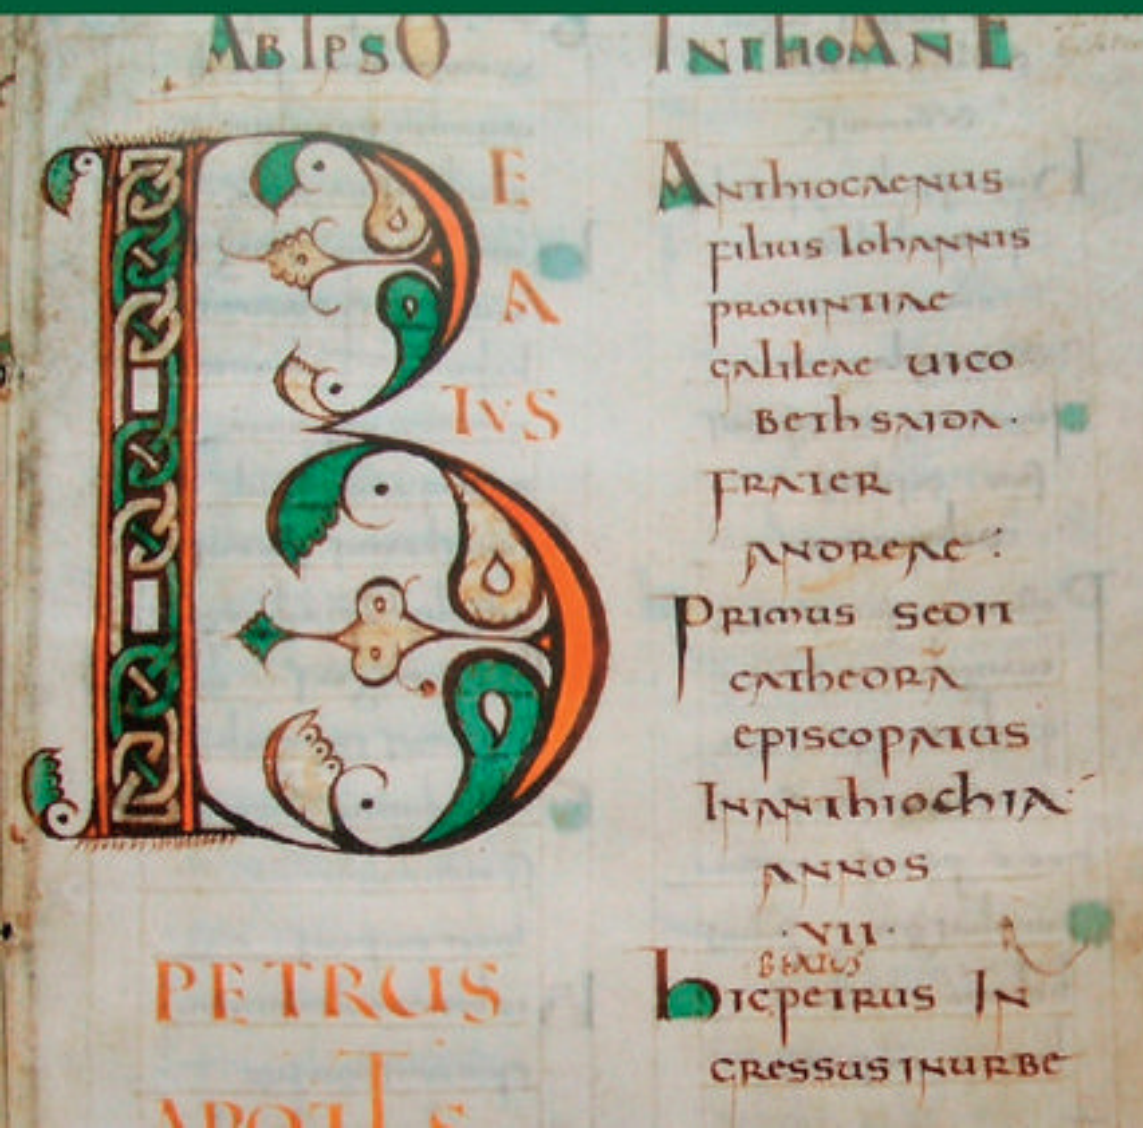 AB IPSO
BE
A
TVS
PETRUS
APOSTLS
INTHOANE
ANTHIOCAENUS
FILIUS IOHANNIS
PROUINTIAE
GALILEAE UICO
BETHSAIDA·
FRATER
ANDREAE :
PRIMUS SEDIT
CATHEDRÃ
EPISCOPATUS
INANTHIOCHIA
ANNOS
·VII·
BEATUS
HICPETRUS IN
GRESSUS INURBE